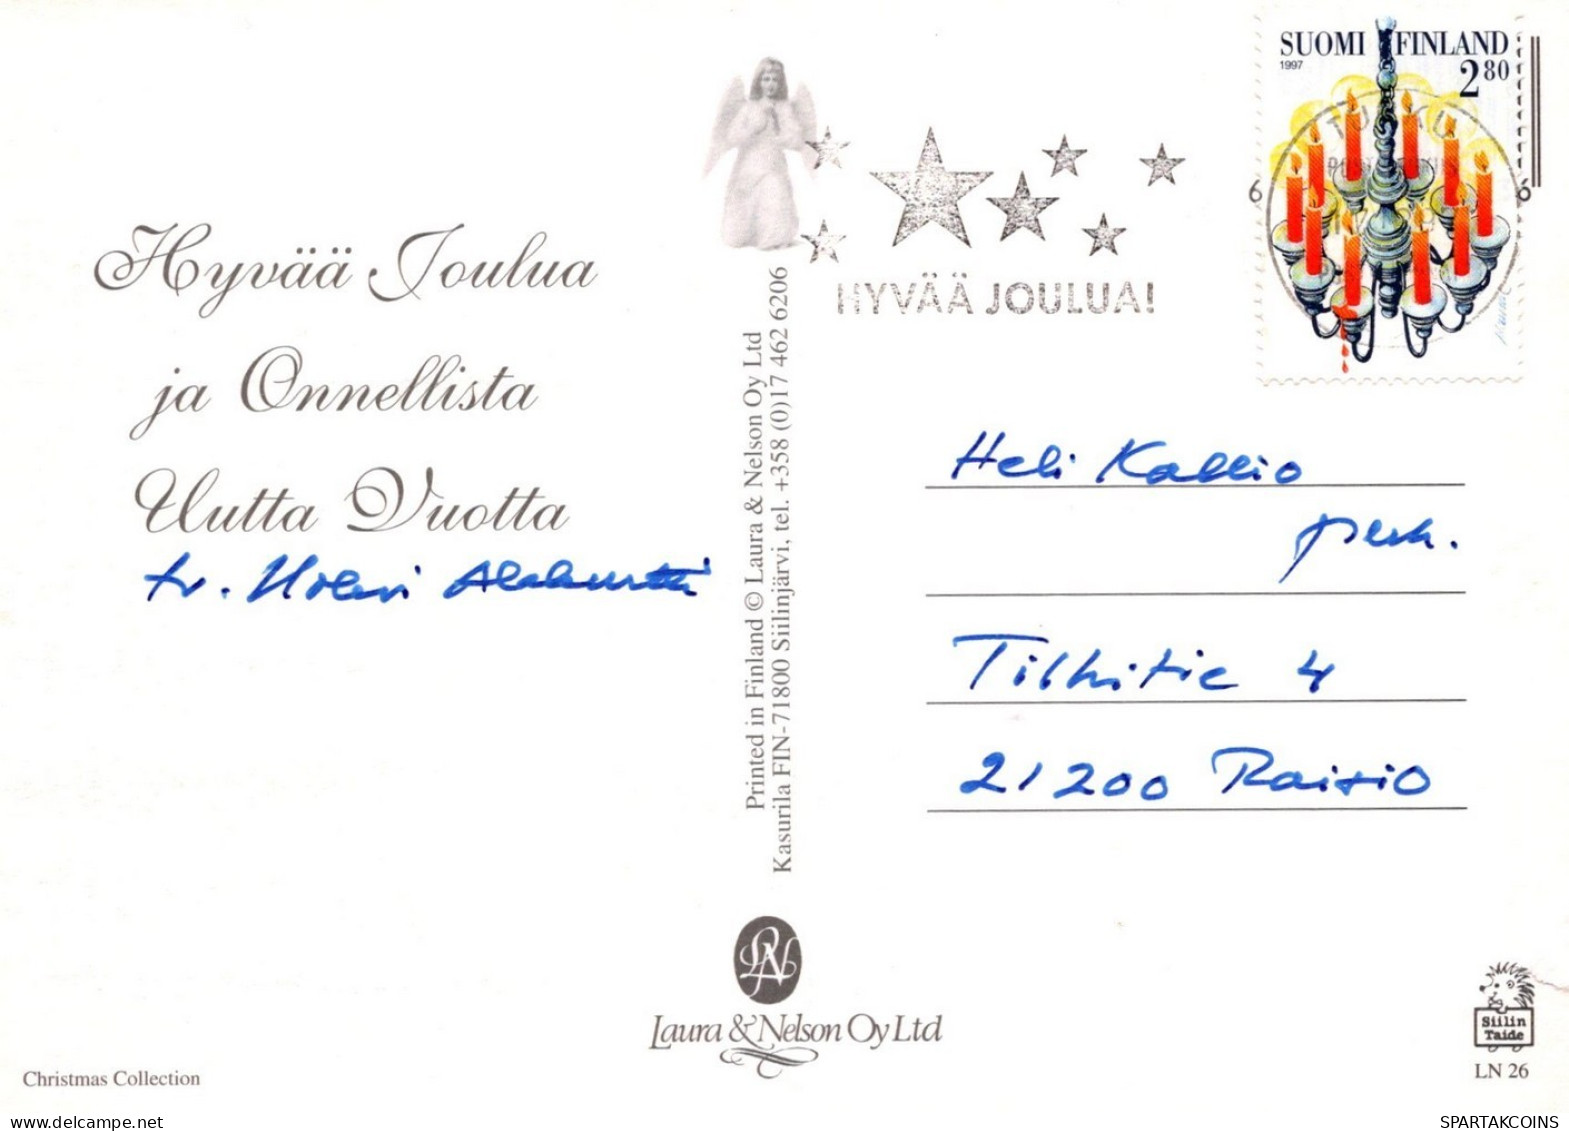 SUOMI FINLAND
1997
2 80
TURKU
6 6
HYVÄÄ JOULUA!
Hyvää Joulua
ja Onnellista
Uutta Vuotta
tv.
Printed in Finland © Laura & Nelson Oy Ltd
Kasurila FIN-71800 Siilinjärvi, tel. +358 (0)17 462 6206
Heli Kallio
perh.
Tilhitie 4
21200 Raisio
LN
Laura & Nelson Oy Ltd
Siilin
Taide
LN 26
Christmas Collection
delcampe.net
SPARTAKCOINS